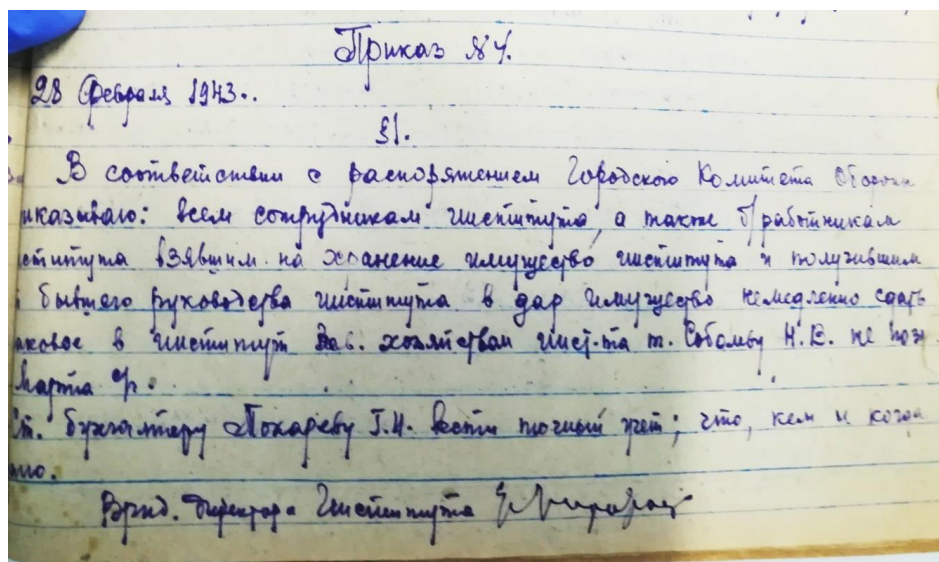 Приказ №4.
28 Февраля 1943..
§1.
В соответствии с распоряжением Городского Комитета Оборон
иказываю: всем сотрудникам института, а также б/работникам
ститута взявшим на хранение имущество института и получившим
бывшего руководства института в дар имущество немедленно сдать
аковое в институт Зав. хозяйством инст-та т. Н.В. не поз
Марта
т. бухгалтеру Токареву Г.И. вести точный учет; что, кем и когда
ано.
Врид. Директора Института